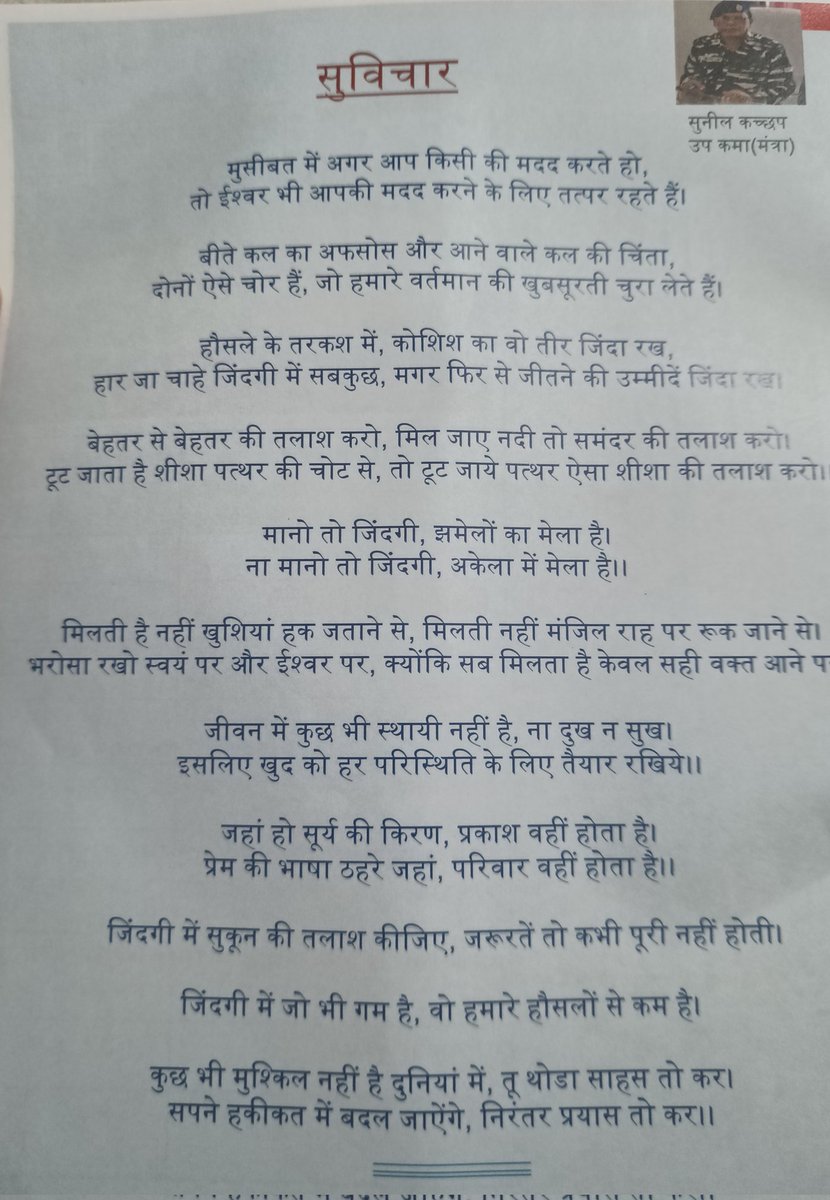 सुविचार
सुनील कच्छप
उप कमा(मंत्रा)
मुसीबत में अगर आप किसी की मदद करते हो,
तो ईश्वर भी आपकी मदद करने के लिए तत्पर रहते हैं।
बीते कल का अफसोस और आने वाले कल की चिंता,
दोनों ऐसे चोर हैं, जो हमारे वर्तमान की खुबसूरती चुरा लेते हैं।
हौसले के तरकश में, कोशिश का वो तीर जिंदा रख,
हार जा चाहे जिंदगी में सबकुछ, मगर फिर से जीतने की उम्मीदें जिंदा रख।
बेहतर से बेहतर की तलाश करो, मिल जाए नदी तो समंदर की तलाश करो।
टूट जाता है शीशा पत्थर की चोट से, तो टूट जाये पत्थर ऐसा शीशा की तलाश करो।।
मानो तो जिंदगी, झमेलों का मेला है।
ना मानो तो जिंदगी, अकेला में मेला है।।
मिलती है नहीं खुशियां हक जताने से, मिलती नहीं मंजिल राह पर रूक जाने से।
भरोसा रखो स्वयं पर और ईश्वर पर, क्योंकि सब मिलता है केवल सही वक्त आने
जीवन में कुछ भी स्थायी नहीं है, ना दुख न सुख।
इसलिए खुद को हर परिस्थिति के लिए तैयार रखिये।।
जहां हो सूर्य की किरण, प्रकाश वहीं होता है।
प्रेम की भाषा ठहरे जहां, परिवार वहीं होता है।।
जिंदगी में सुकून की तलाश कीजिए, जरूरतें तो कभी पूरी नहीं होती।
जिंदगी में जो भी गम है, वो हमारे हौसलों से कम है।
कुछ भी मुश्किल नहीं है दुनियां में, तू थोडा साहस तो कर।
सपने हकीकत में बदल जाऐंगे, निरंतर प्रयास तो कर।।